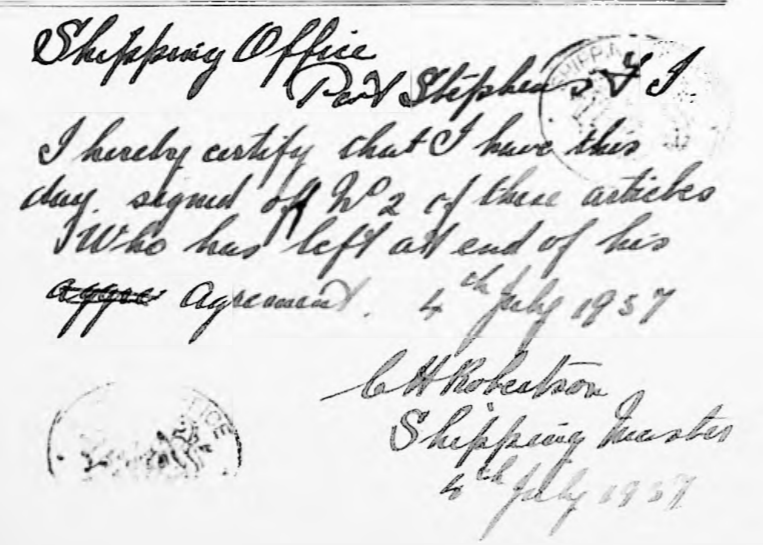 Shipping Office
Port Stephens F I
I hereby certify that I have this
day signed off No 2 of these articles
Who has left at end of his
aggre Agreement. 4th July 1937
C H Robertson
Shipping Master
4th July 1937
SHIPPIN
ICE